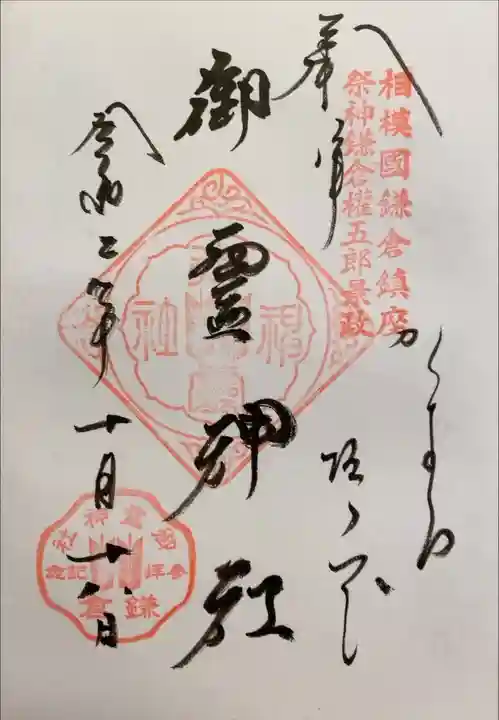 相模國鎌倉鎮座
祭神鎌倉權五郎景政
奉拝
かまくら
坂ノ下
御霊神社
令和二年十月十八日
御霊神社
参拝記念
鎌倉